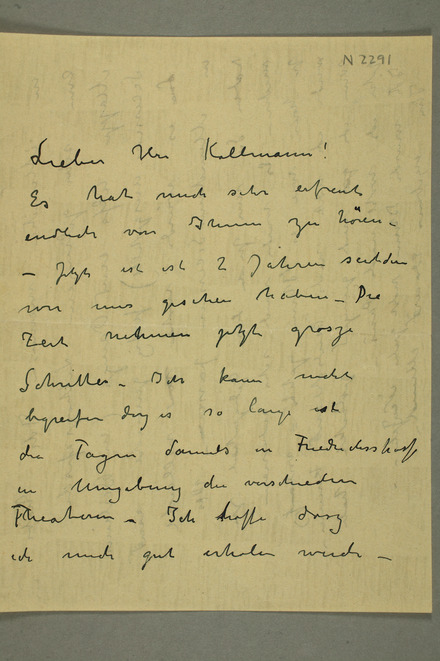 N 2291
Lieber Herr Kallmann!
Es hat mich sehr erfreut
endlich von Ihnen zu hören –
– Jetzt ist es 2 Jahren seitdem
wir uns gesehen haben – Die
Zeit nehmen jetzt grosze
Schritte – Ich kann nicht
begreifen dasz es so lange ist
die Tagen damals in
in Umgebung die verschieden
Theatern – Ich hoffe dasz
ich mich gut erholen werde –